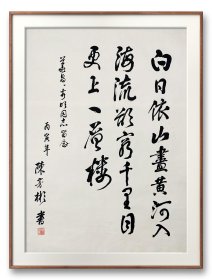 白日依山盡黃河入
海流欲窮千里目
更上一層樓
同志留念
丙寅年
陳芳彬書